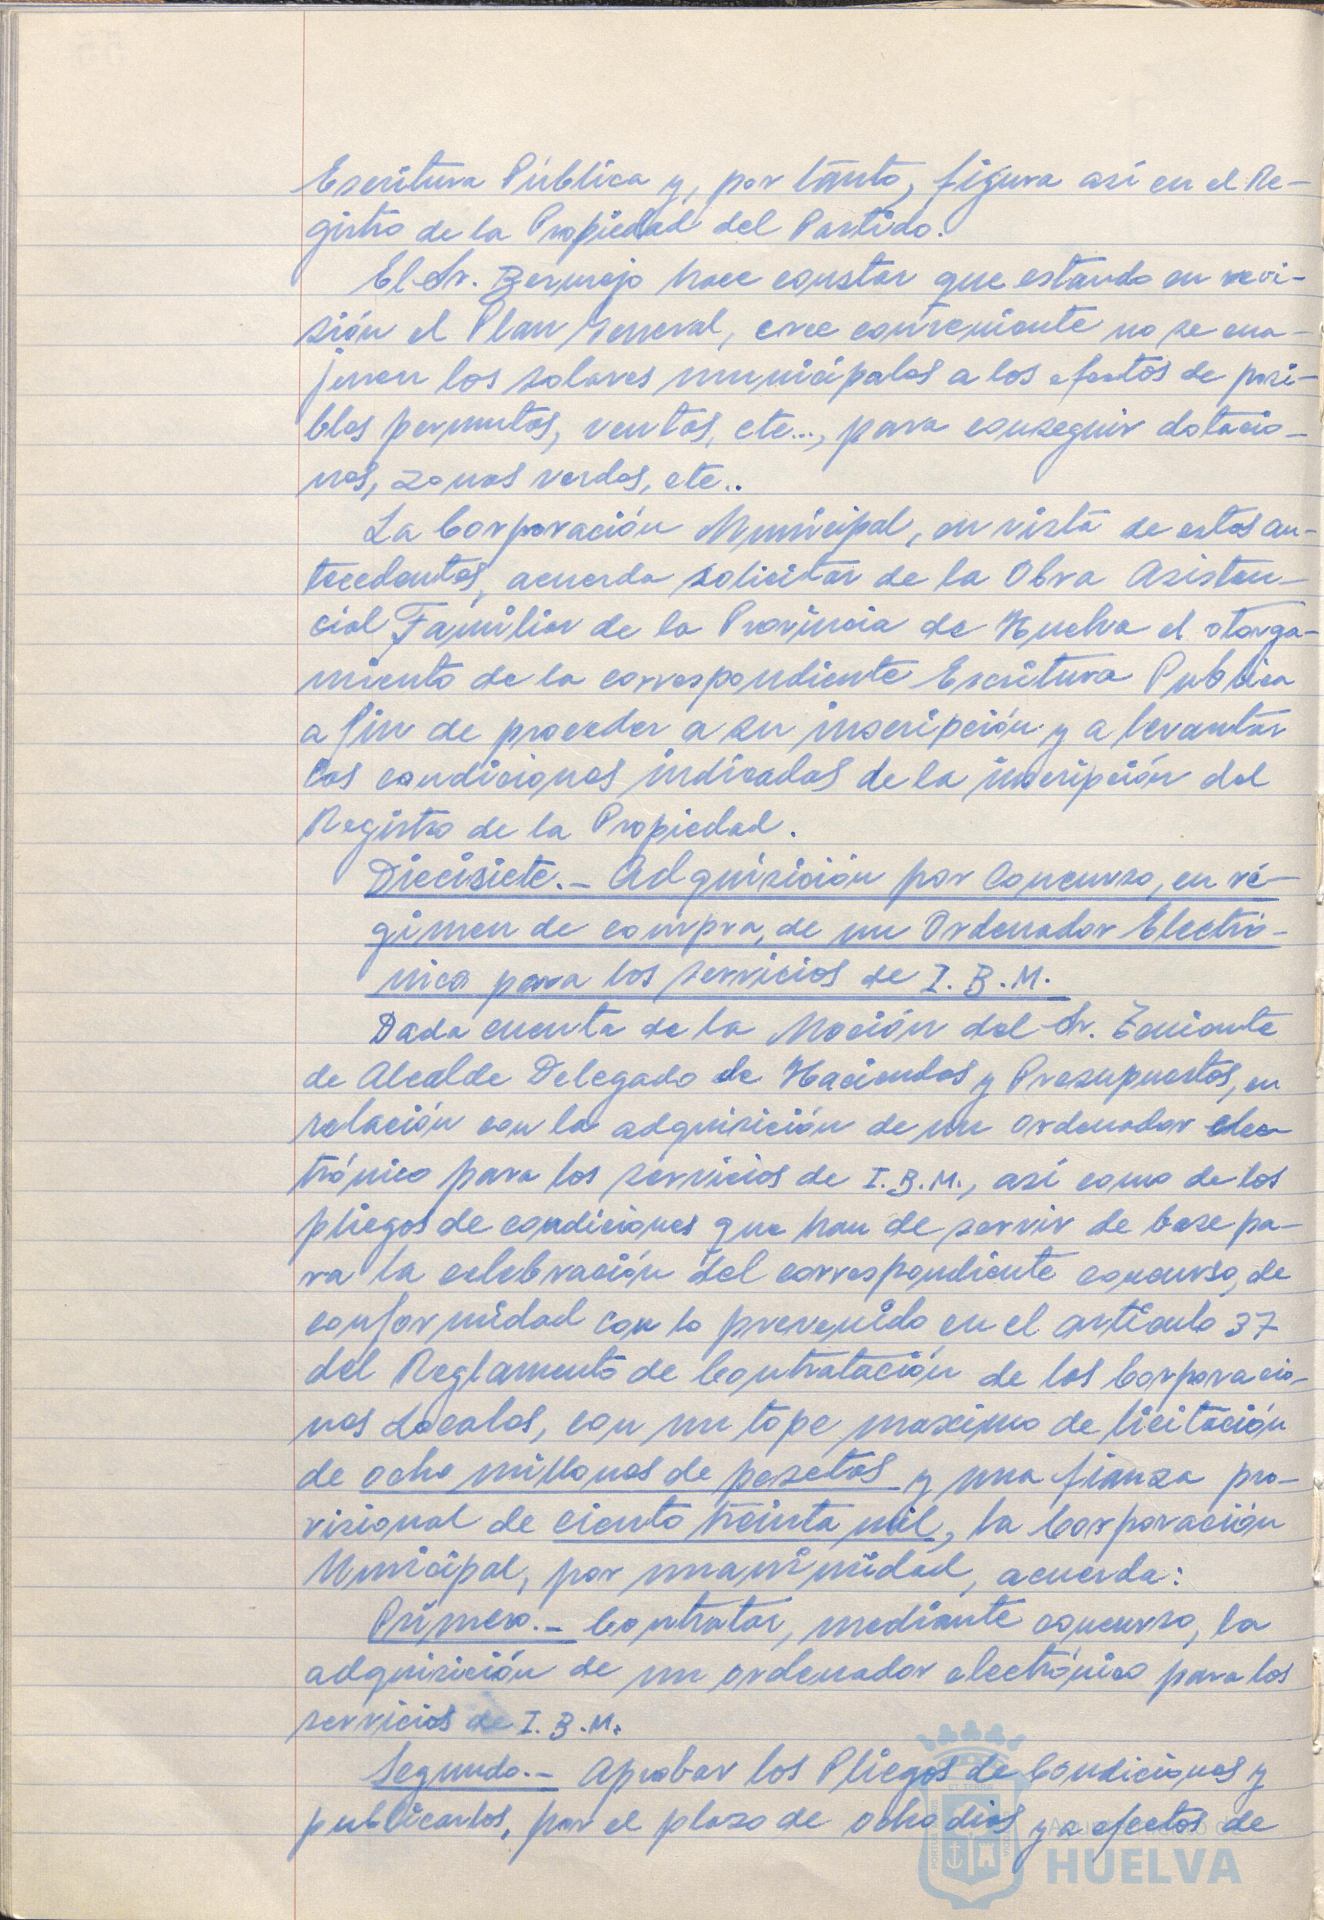 Escritura Pública y, por tanto, figura así en el Re-
gistro de la Propiedad del Partido.
El Sr. Bermejo hace constar que estando en revi-
sión el Plan General, cree conveniente no se ena-
jenen los solares municipales a los efectos de posi-
bles permutas, ventas, etc..., para conseguir dotacio-
nes, zonas verdes, etc..
La Corporación Municipal, en vista de estos an-
tecedentes, acuerda solicitar de la Obra Asisten-
cial Familiar de la Provincia de Huelva el otorga-
miento de la correspondiente Escritura Publica
a fin de proceder a su inscripción y a levantar
las condiciones indicadas de la inscripción del
Registro de la Propiedad.
Diecisiete.- Adquisición por Concurso, en ré-
gimen de compra, de un Ordenador Electró-
nico para los servicios de I.B.M.
Dada cuenta de la Moción del Sr. Teniente
de Alcalde Delegado de Haciendas y Presupuestos, en
relación con la adquisición de un ordenador elec-
trónico para los servicios de I.B.M., así como de los
pliegos de condiciones que han de servir de base pa-
ra la celebración del correspondiente concurso, de
conformidad con lo prevenido en el artículo 37
del Reglamento de Contratación de las Corporacio-
nes Locales, con un tope maximo de licitación
de ocho millones de pesetas y una fianza pro-
visional de ciento treinta mil, la Corporación
Municipal, por unanimidad, acuerda:
Primero.- Contratar, mediante concurso, la
adquisición de un ordenador electrónico para los
servicios de I.B.M.
Segundo.- Aprobar los Pliegos de Condiciones y
publicarlos, por el plazo de ocho dias y a efectos de
Ayuntamiento de
HUELVA